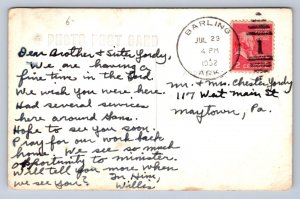 6
PHOTO POST CARD
BARLING
JUL 23
4 PM
1952
ARK.
1
Dear Brother & Sister Yordy,
We are having a
fine time in the Lord.
We wish you were here.
Had several services
here around Hans.
Hope to see you soon.
Pray for our work back
home. We see so much
opportunity to minister.
Will tell you more when
we see you.
In Him,
Willes
Mr. & Mrs. Chester Yordy
1117 West Main St
Maytown, Pa.